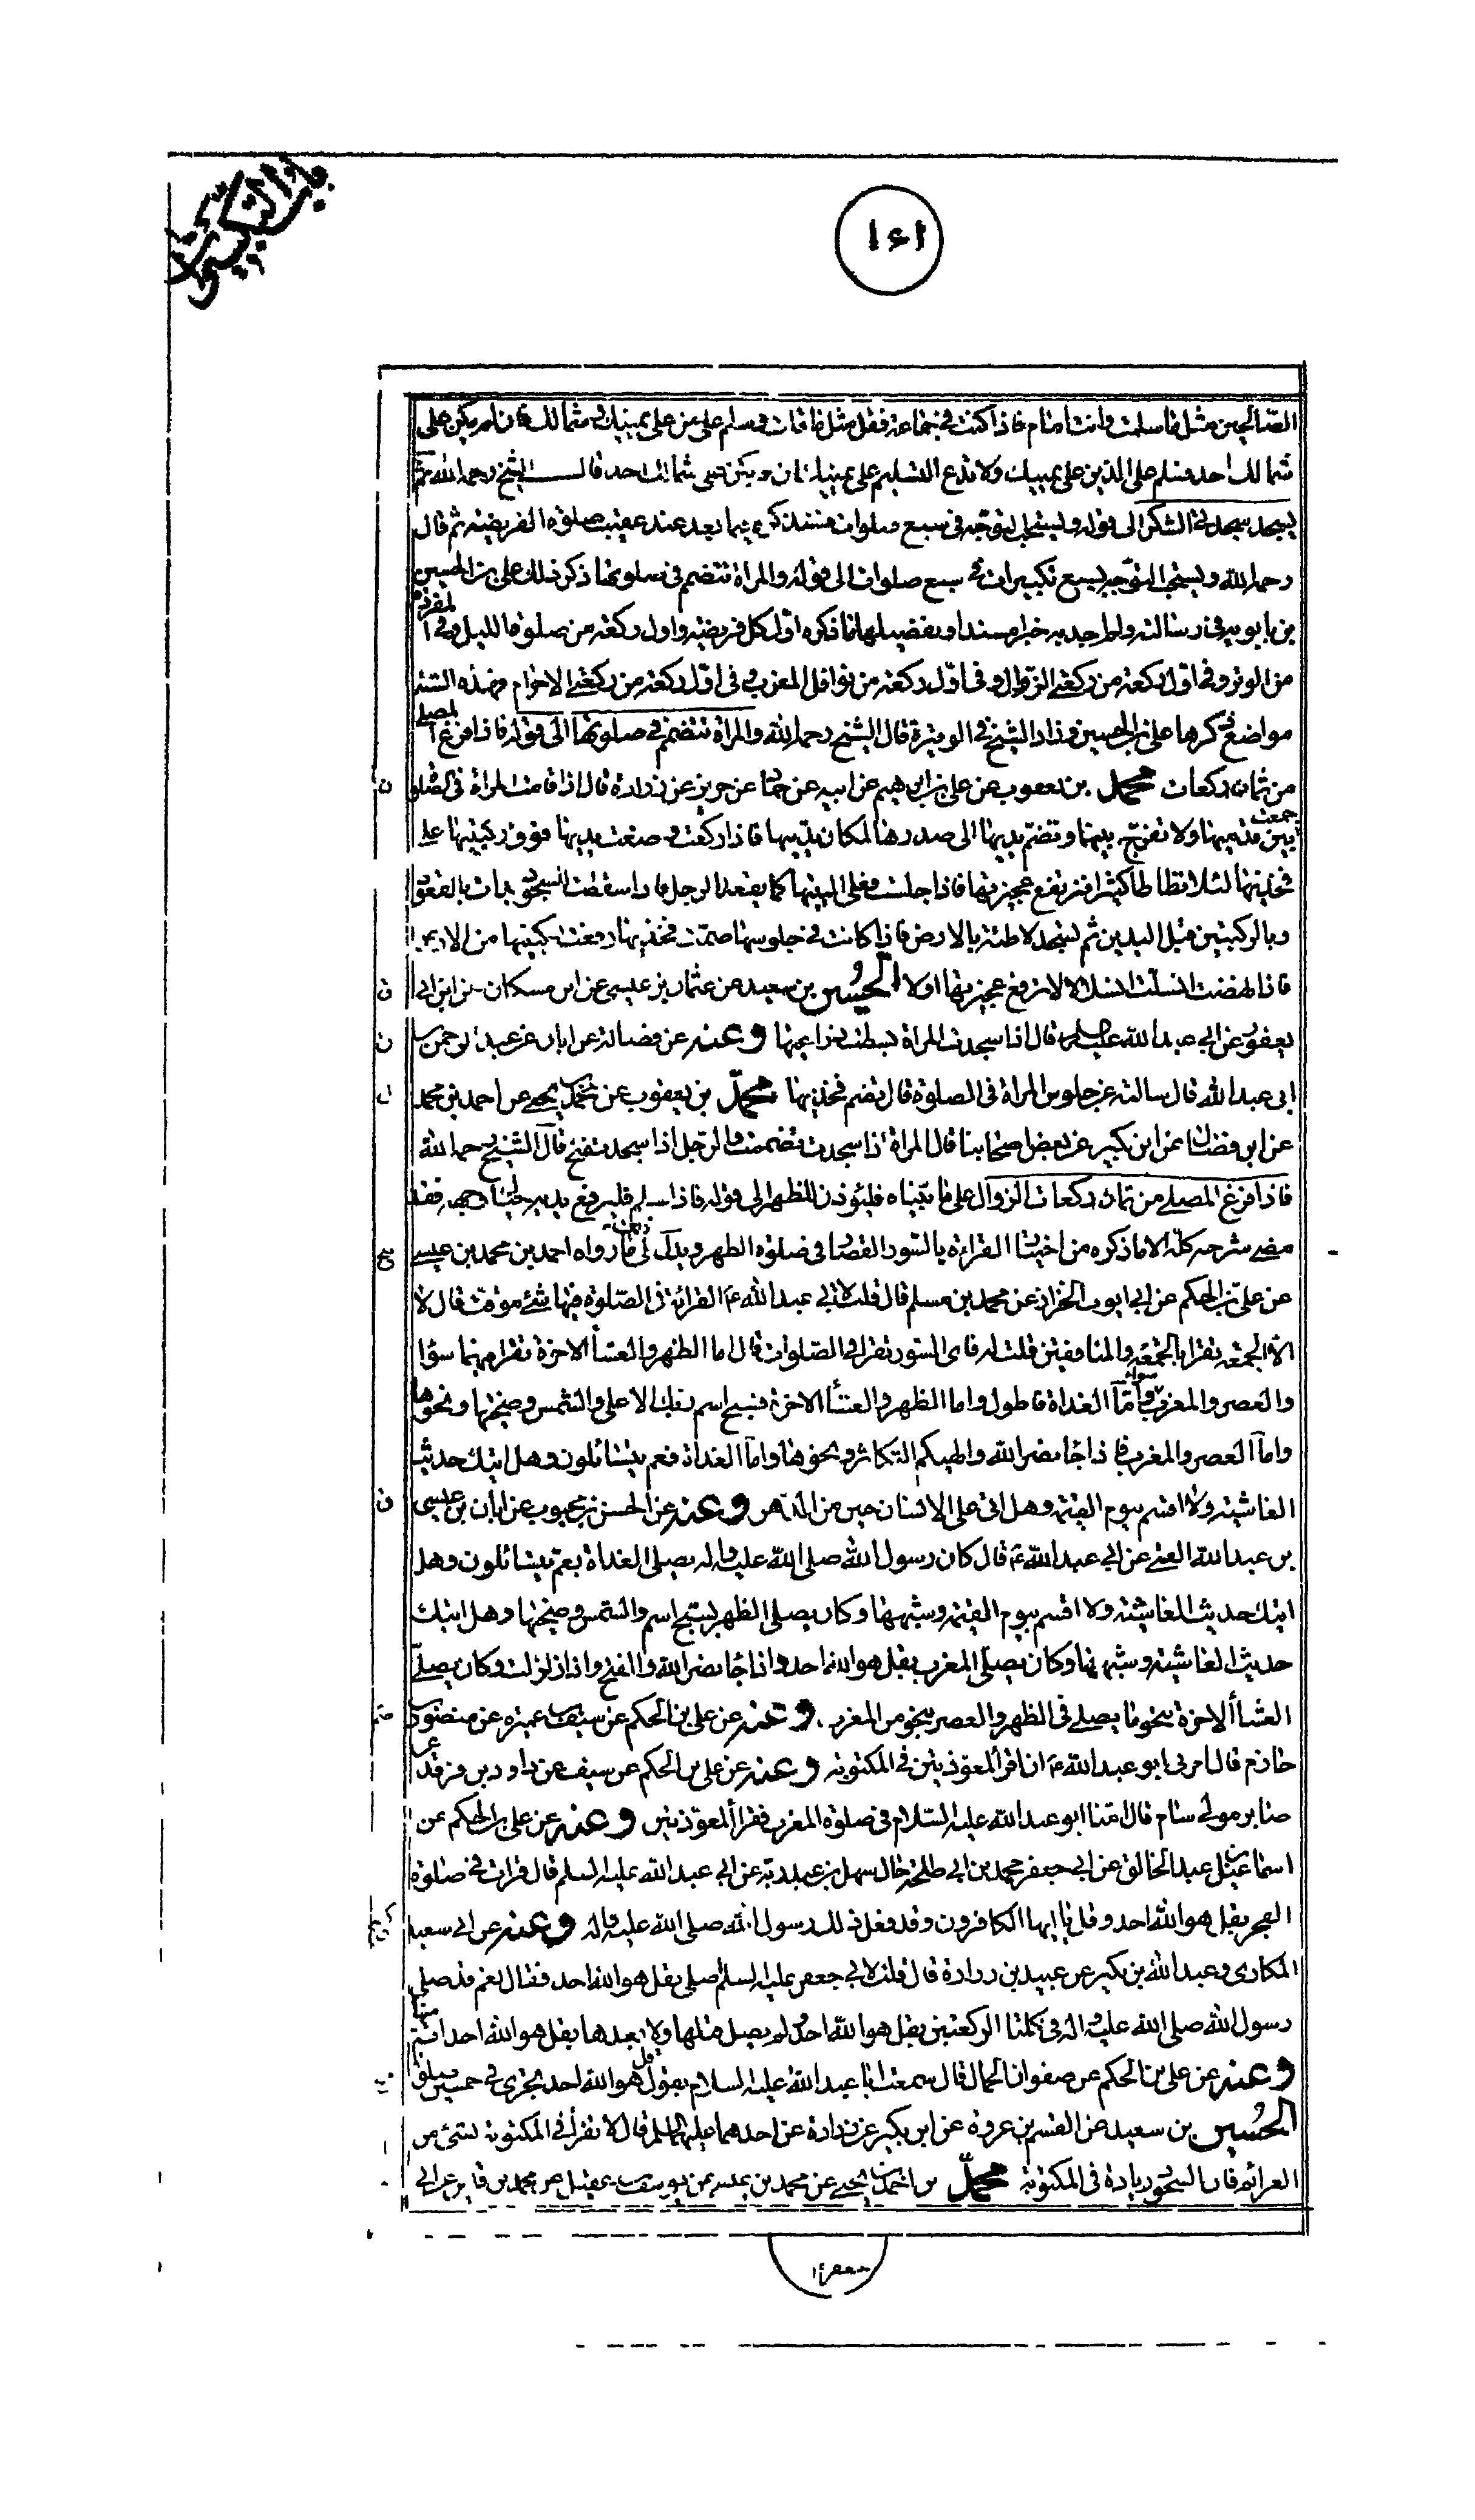 ١٤١
الصالحين مثل ما سلمت وانت امام فاذا كنت في جماعة فقل مثل ما قلت وسلم على من على يمينك وشمالك فان لم يكن على
شمالك احد فسلم على الذين على يمينك ولا تدع التسليم على يمينك ان لم يكن على شمالك احد قال الشيخ رحمه الله ثم
ليسجد سجدتي الشكر الى قوله ويستحب التوجه في سبع صلوات فسنذكره فيما بعد عند تعقيب صلوة الفريضة ثم قال
رحمه الله ويستحب التوجه بسبع تكبيرات في سبع صلوات الى قوله والمراة تنضم في صلوتها ذكر ذلك علي بن الحسين
بن بابويه في رسالته ولم اجد به خبرا مسندا وتفصيلها ما ذكره اول كل فريضة واول ركعة من صلوة الليل وفي المفردة
من الوتر وفي اول ركعة من ركعتي الزوال وفي اول ركعة من نوافل المغرب وفي اول ركعة من ركعتي الاحرام فهذه الستة
مواضع ذكرها علي بن الحسين وزاد الشيخ في الوتيرة قال الشيخ رحمه الله والمراة تنضم في صلوتها الى قوله فاذا فرغ المصلي
من ثمان ركعات محمد بن يعقوب عن علي بن ابرهيم عن ابيه عن حماد عن حريز عن زرارة قال اذا قامت المراة في الصلوة
جمعت بين قدميها ولا تفرج بينهما وتضم يديها الى صدرها لمكان ثدييها فاذا ركعت وضعت يديها فوق ركبتيها على
فخذيها لئلا تطاطا كثيرا فترتفع عجيزتها فاذا جلست فعلى اليتيها كما يقعد الرجل فاذا سقطت للسجود بدات بالقعود
وبالركبتين قبل اليدين ثم تسجد لاطئة بالارض فاذا كانت في جلوسها ضمت فخذيها ورفعت ركبتيها من الارض
فاذا نهضت انسلت انسلالا لا ترفع عجيزتها اولا الحسين بن سعيد عن عثمان بن عيسى عن ابن مسكان عن ابن ابي
يعفور عن ابي عبد الله عليه السلام قال اذا سجدت المراة بسطت ذراعيها وعنه عن فضالة عن ابان عن عبد الرحمن بن
ابي عبد الله قال سالته عن جلوس المراة في الصلوة قال تضم فخذيها محمد بن يعقوب عن محمد بن يحيى عن احمد بن محمد
عن ابن فضال عن ابن بكير عن بعض اصحابنا قال المراة اذا سجدت تضممت والرجل اذا سجد تفتح قال الشيخ رحمه الله
فاذا فرغ المصلي من ثمان ركعات الزوال على ما بيناه فليؤذن للظهر الى قوله فاذا سلم فليرفع يديه حيال وجهه فقد
مضى شرحه كله الا ما ذكره من اختيار القراءة بالسور القصار في صلوة الظهر ويدل على ذلك ما رواه احمد بن محمد بن عيسى
عن علي بن الحكم عن ابي ايوب الخزاز عن محمد بن مسلم قال قلت لابي عبد الله ع القرائة في الصلوة فيها شئ موقت قال لا
الا الجمعة تقرا بالجمعة والمنافقين قلت له فاي السور تقرا في الصلوات قال اما الظهر والعشأ الاخرة تقرا فيهما سوا
والعصر والمغرب سواء واما الغداة فاطول واما الظهر والعشأ الاخرة فسبح اسم ربك الاعلى والشمس وضحيها ونحوها
واما العصر والمغرب فاذا جاء نصر الله والهيكم التكاثر ونحوها واما الغداة فعم يتسائلون وهل اتيك حديث
الغاشية ولا اقسم بيوم القيمة وهل اتى على الانسان حين من الدهر وعنه عن الحسن بن محبوب عن ابان عن عيسى
بن عبد الله القمي عن ابي عبد الله ع قال كان رسول الله صلى الله عليه واله يصلي الغداة بعم يتسائلون وهل
اتيك حديث الغاشية ولا اقسم بيوم القيمة وشبهها وكان يصلي الظهر بسبح اسم والشمس وضحيها وهل اتيك
حديث الغاشية وشبهها وكان يصلي المغرب بقل هو الله احد واذا جا نصر الله والفتح واذا زلزلت وكان يصلي
العشأ الاخرة بنحو ما يصلي في الظهر والعصر بنحو من المغرب وعنه عن علي بن الحكم عن سيف بن عميرة عن منصور بن
حازم قال امرني ابو عبد الله ع ان اقرأ المعوذتين في المكتوبة وعنه عن علي بن الحكم عن سيف عن داود بن فرقد عن
صابر مولى بسام قال امنا ابو عبد الله عليه السلام في صلوة المغرب فقرأ المعوذتين وعنه عن علي بن الحكم عن
اسماعيل بن عبد الخالق عن ابي جعفر محمد بن ابي طلحة خال سهل بن عبد ربه عن ابي عبد الله عليه السلم قال قرات في صلوة
الفجر بقل هو الله احد وقل يا ايها الكافرون وقد فعل ذلك رسول الله صلى الله عليه واله وعنه عن ابي سعيد
المكاري وعبد الله بن بكير عن عبيد بن زرارة قال قلت لابي جعفر عليه السلم اصلي بقل هو الله احد فقال نعم قد صلى
رسول الله صلى الله عليه واله في كلتا الركعتين بقل هو الله احد لم يصل قبلها ولا بعدها بقل هو الله احد اتم منها
وعنه عن علي بن الحكم عن صفوان الجمال قال سمعت ابا عبد الله عليه السلام يقول قل هو الله احد تجزي في خمسين صلوة
الحسين بن سعيد عن القسم بن عروة عن ابن بكير عن زرارة عن احدهما عليهما السلم قال لا تقرأ في المكتوبة بشئ من
العزائم فان السجود زيادة في المكتوبة محمد بن احمد بن يحيى عن محمد بن عيسى عن يوسف بن عقيل عن محمد بن قيس عن ابي
جعفر